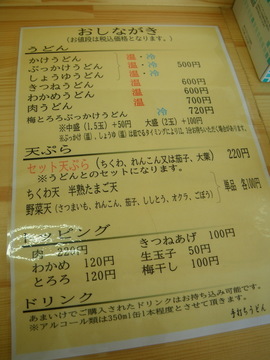 おしながき
（お値段は税込価格となります。）
うどん
かけうどん 温・冷
ぶっかけうどん 温・冷 500円
しょうゆうどん 温・冷
きつねうどん 温 600円
わかめうどん 温 600円
肉うどん 温 700円
梅とろろぶっかけうどん 冷 720円
※中盛（1.5玉）+50円 大盛（2玉）+100円
天ぷら
セット天ぷら（ちくわ、れんこん又は茄子、大葉） 220円
※うどんとのセットになります。
ちくわ天 半熟たまご天
野菜天（さつまいも、れんこん、茄子、ししとう、オクラ、ごぼう） 単品 各100円
トッピング
肉 220円 きつねあげ 100円
わかめ 120円 生玉子 50円
とろろ 120円 梅干し 100円
ドリンク
あまいけでご購入されたドリンクはお持ち込み可能です。
※アルコール類は350ml1缶1本程度とさせて頂きます。
手打ちうどん